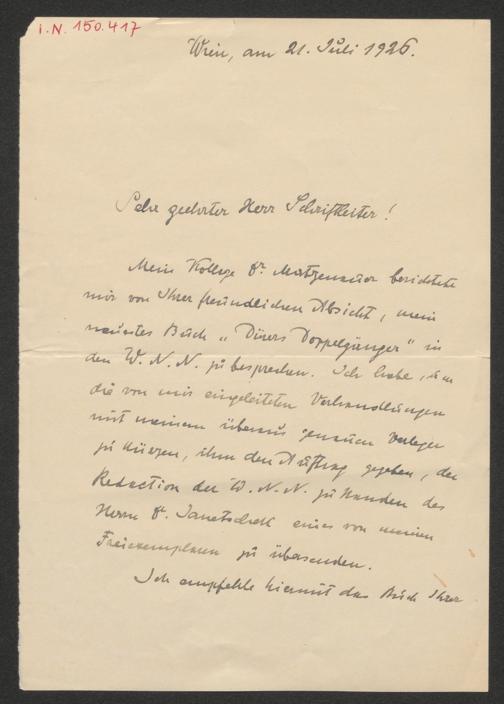 I.N. 150.417
Wien, am 21. Juli 1926.
Sehr geehrter Herr Schriftleiter!
Mein Kollege Dr. Matzenauer berichtete
mir von Ihrer freundlichen Absicht, mein
neuestes Buch „Dürers Doppelgänger" in
den W. N. N. zu besprechen. Ich habe, um
die von mir eingeleiteten Verhandlungen
mit meinem überaus genauen Verleger
zu kürzen, ihm den Auftrag gegeben, der
Redaction der W. N. N. zu Handen des
Herrn Dr. Janetschek eines von meinen
Freiexemplaren zu übersenden.
Ich empfehle hiermit das Buch Ihrer